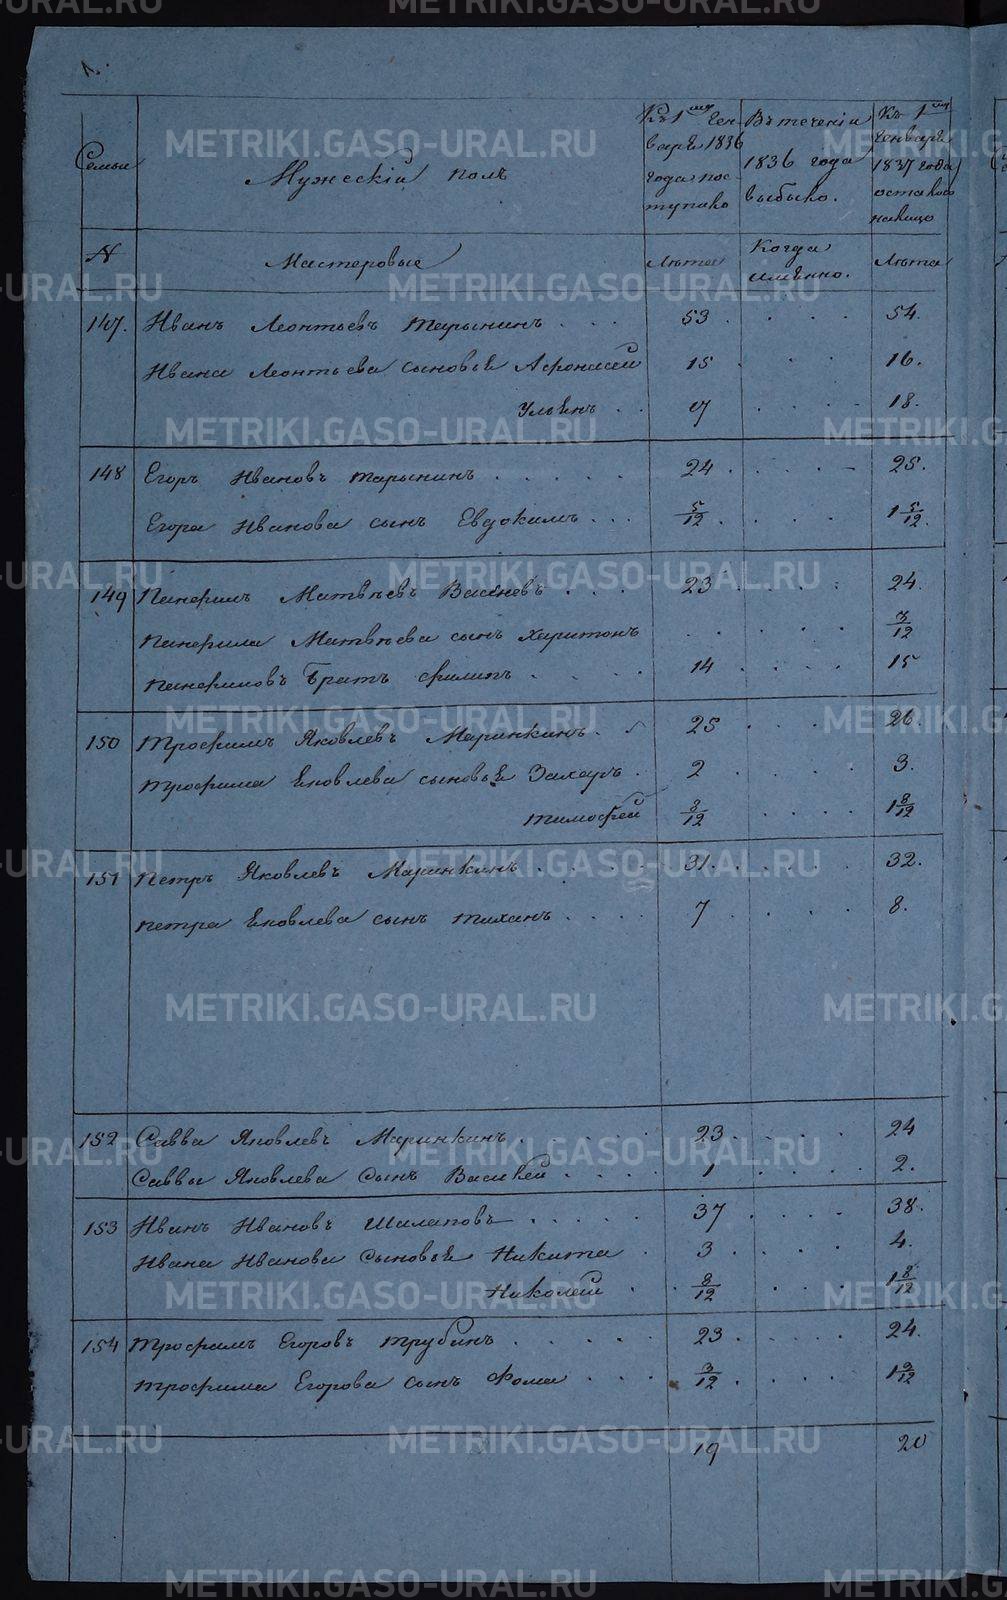 1.
Семьи
Мужескій полъ
Къ 1му Ген
варя 1836
года пос
тупило
Въ теченіи
1836 года
выбыло.
Къ 1му
Генваря
1837 года
остается
налицо
№
Мастеровые
Лѣта
Когда
имѣнно.
Лѣта
147. Иванъ Леонтьевъ Тарынинъ . . . 53 . . . . 54.
Ивана Леонтьева сыновья Афонасей 15 . . . 16.
Ульянъ . . 17 . . . . 18.
148 Егоръ Ивановъ Тарынинъ . . . . . 24 . . . . 25.
Егора Иванова сынъ Евдокимъ . . . 5/12 . . . . 1 5/12.
149 Панфилъ Матвѣевъ . . . 23 . . . 24.
Панфила Матвѣева сынъ Харитонъ . . . . . 3/12
Панфиловъ Братъ Филипъ . . . . 14 . . . . 15
150 Трофимъ Яковлевъ Маринкинъ . . 25 . . . . 26.
Трофима Яковлева сыновья Захаръ . 2 . . . . 3.
Тимофей 8/12 . . . . 1 8/12
151 Петръ Яковлевъ Маринкинъ . . . . 31. . . . . 32.
Петра Яковлева сынъ Тиханъ . . . . 7 . . . . 8.
152 Савва Яковлевъ Маринкинъ . . . . . 23 . . . . 24
Саввы Яковлева Сынъ Василей . . . . 1 . . . . 2.
153 Иванъ Ивановъ Шалаповъ . . . . . 37 . . . . 38.
Ивана Иванова Сыновья Никита . 3 . . . . 4.
Николай . . 8/12 . . . . 1 8/12
154 Трофимъ Егоровъ Трубинъ . . . . . 23 . . . . 24.
Трофима Егорова сынъ Фома . . . 3/12 . . . . 1 3/12
19 20
METRIKI.GASO-URAL.RU